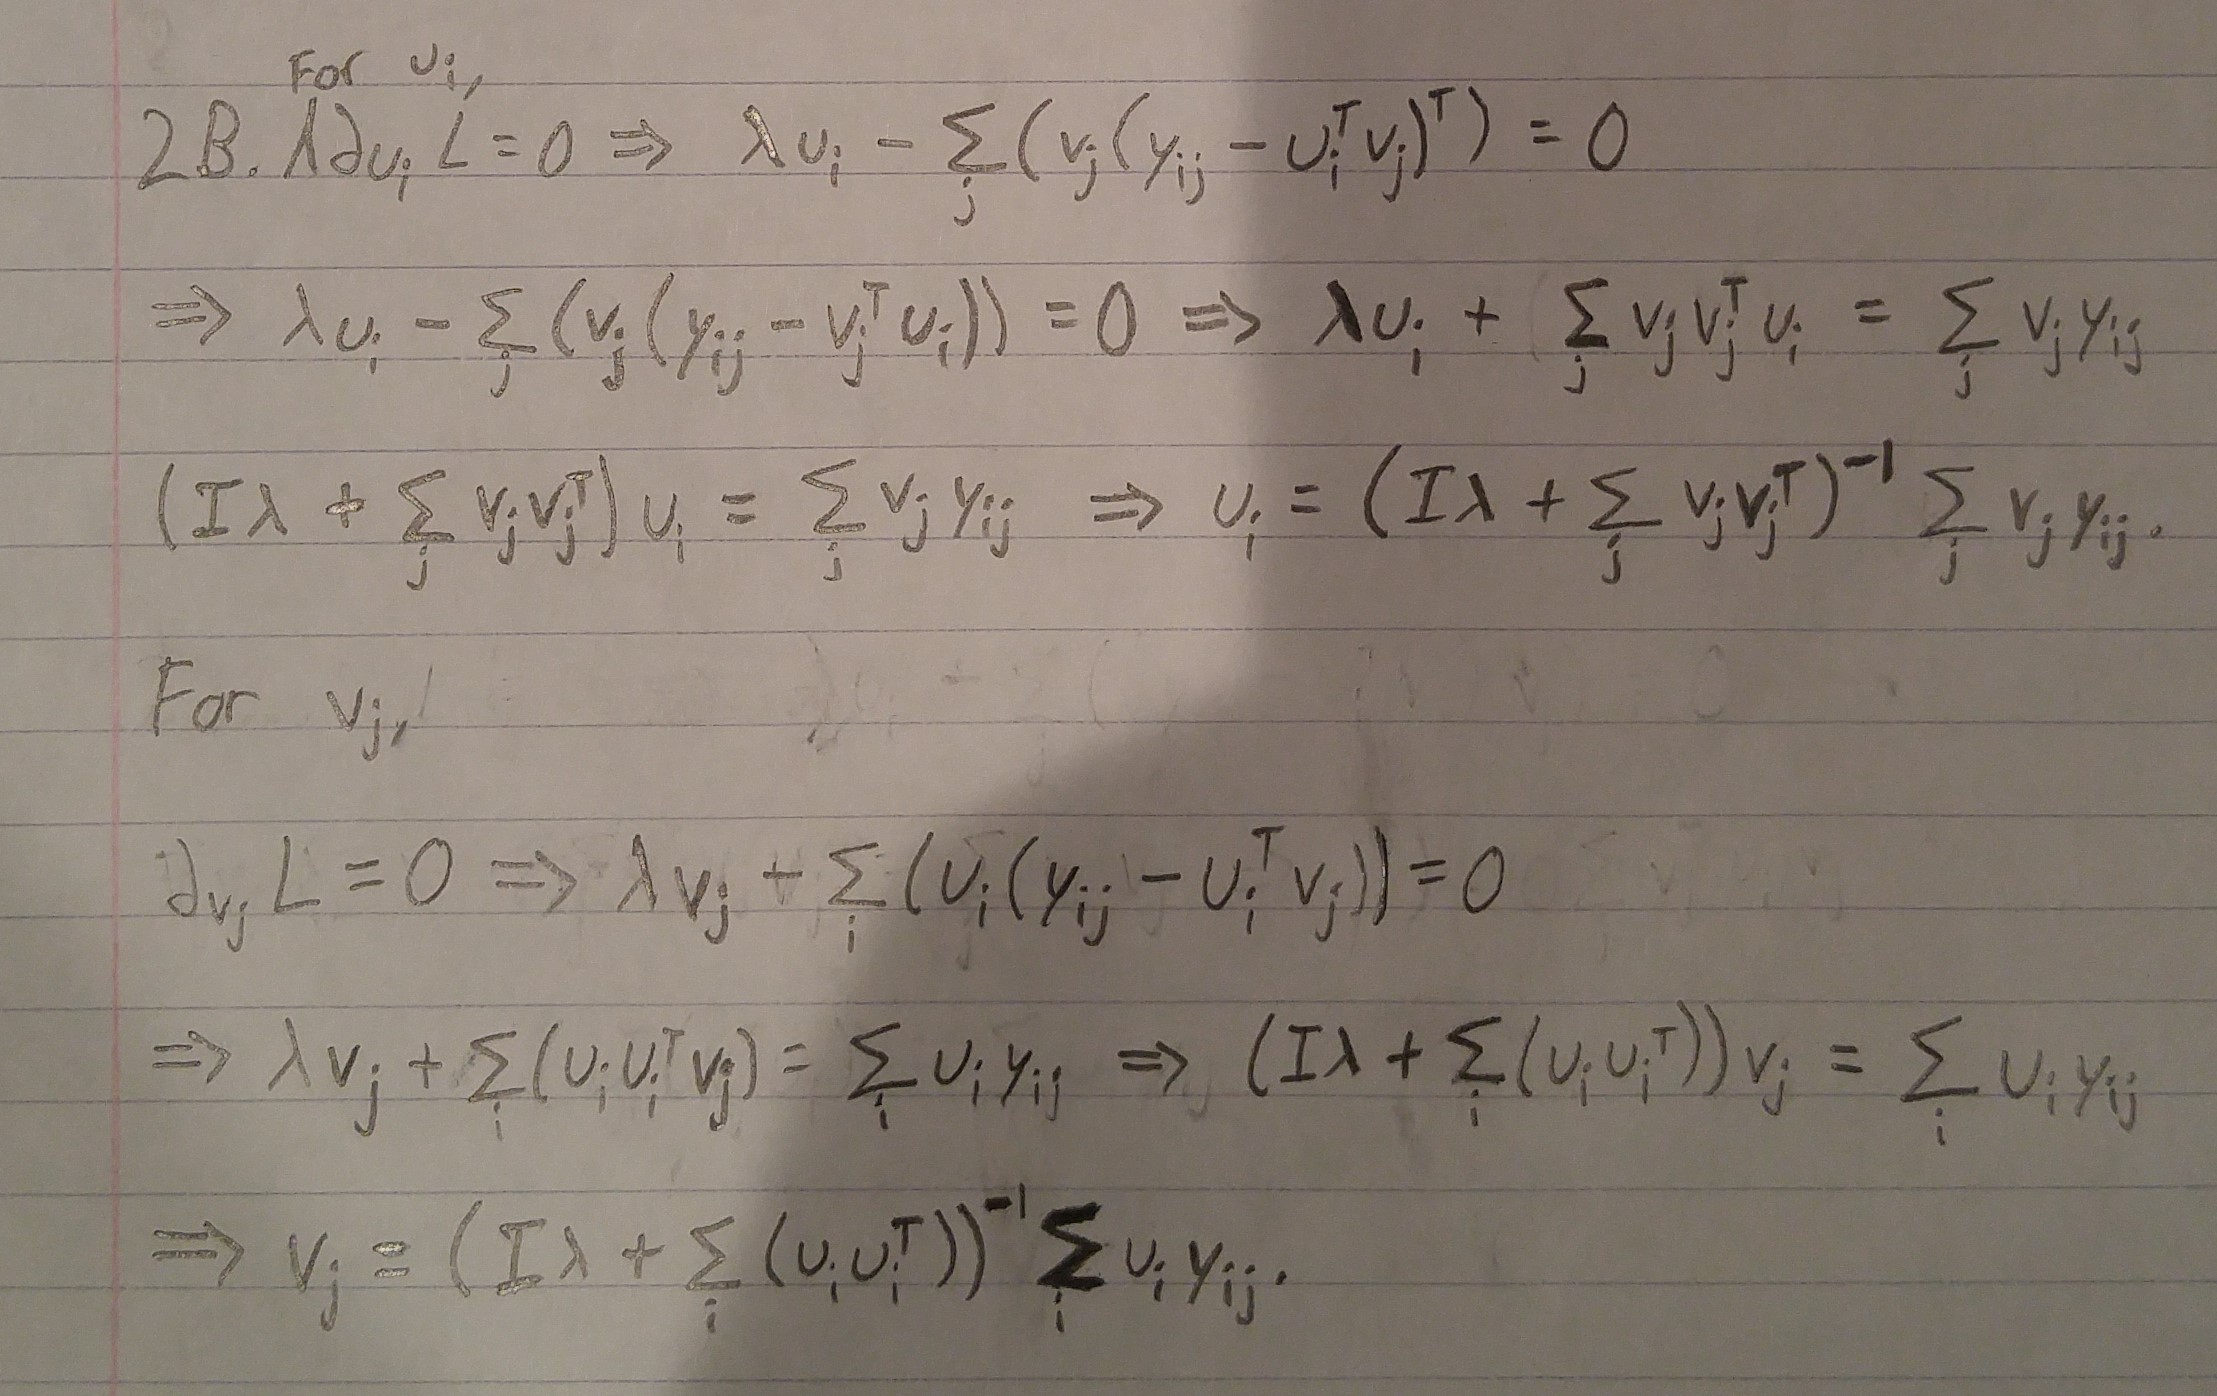 For uᵢ,
2B. ∂uᵢ L = 0 ⇒ λuᵢ - Σⱼ(vⱼ(yᵢⱼ - uᵢᵀvⱼ)ᵀ) = 0
⇒ λuᵢ - Σⱼ(vⱼ(yᵢⱼ - vⱼᵀuᵢ)) = 0 ⇒ λuᵢ + Σⱼ vⱼvⱼᵀuᵢ = Σⱼ vⱼyᵢⱼ
(Iλ + Σⱼ vⱼvⱼᵀ)uᵢ = Σⱼ vⱼyᵢⱼ ⇒ uᵢ = (Iλ + Σⱼ vⱼvⱼᵀ)⁻¹ Σⱼ vⱼyᵢⱼ.
For vⱼ,
∂vⱼ L = 0 ⇒ λvⱼ - Σᵢ(uᵢ(yᵢⱼ - uᵢᵀvⱼ)) = 0
⇒ λvⱼ + Σᵢ(uᵢuᵢᵀvⱼ) = Σᵢ uᵢyᵢⱼ ⇒ (Iλ + Σᵢ(uᵢuᵢᵀ))vⱼ = Σᵢ uᵢyᵢⱼ
⇒ vⱼ = (Iλ + Σᵢ(uᵢuᵢᵀ))⁻¹ Σᵢ uᵢyᵢⱼ.